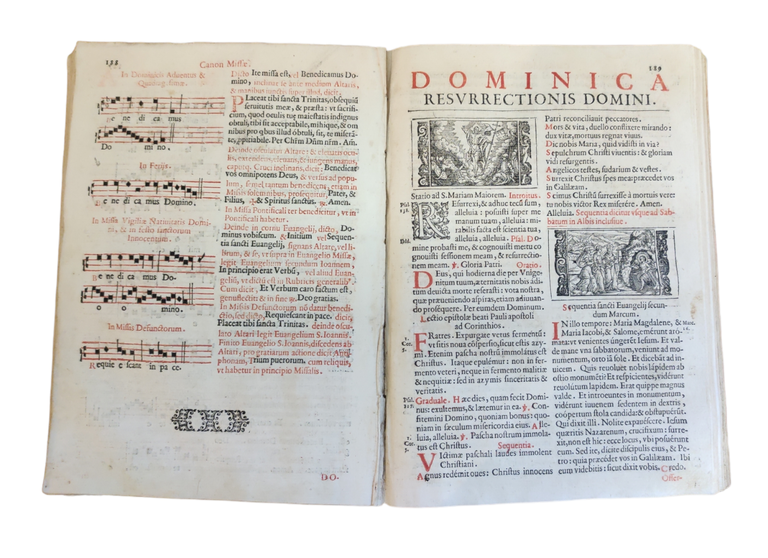 188
Canon Missæ.
In Dominicis Aduentus &
Quadragesimæ.
e ne di ca mus
Do mi no.
In Ferijs.
e ne di ca mus Domino.
In Missis Vigiliæ Natiuitatis Domi
ni, & in festo sanctorum
Innocentum.
e ne di ca mus Do-
o o mino.
In Missis Defunctorum.
Requie e scant in pa ce.
Dicto Ite missa est, vel Benedicamus Do-
mino,
Placeat tibi sancta Trinitas, obsequiũ
seruitutis meæ, & præsta: vt sacri-
cium, quod oculis tuæ maiestatis indignus
obtuli, tibi sit acceptabile, mihique, & om
nibus pro quibus illud obtuli, sit, te miserā-
te, propitiabile. Per Chrm Dñm nrm. Am.
Benedicat
vos omnipotens Deus, & versus ad popu-
lum, semel tantum benedicens, etiam in
Missis solemnibus, prosequitur, Pater, &
Filius, & Spiritus sanctus. Amen.
In Missa Pontificali ter benedicitur, vt in
Pontificali habetur.
Deinde in cornu Euangelij, dicto, Dominus
vobiscum. & Initium vel Sequen-
tia sancti Euangelij, signans Altare, vel li-
brum, & se, vt supra in Euangelio Missæ,
legit Euangelium secundum Ioannem,
In principio erat Verbũ, vel aliud Euan-
gelium,
Cum dicit, Et Verbum caro factum est,
genuflectit & in fine Deo gratias.
In Missis Defunctorum nõ datur benedi-
ctio, sed dicto, Requiescant in pace. dicit,
Placeat tibi sancta Trinitas. deinde oscu-
lato Altari legit Euangelium S. Ioannis.
Finito Euangelio S. Ioannis, discedens ab
Altari, pro gratiarum actione dicit Anti-
phonam, Trium puerorum. cum reliquis,
vt habetur in principio Missalis.
DO-
189
DOMINICA
RESVRRECTIONIS DOMINI.
Statio ad S. Mariam Maiorem. Introitus.
Resurrexi, & adhuc tecũ sum,
alleluia: posuisti super me
manum tuam, alleluia: mi-
rabilis facta est scientia tua,
alleluia, alleluia. Psal. Do-
mine probasti me, & cognouisti me: tu co
gnouisti sessionem meam, & resurrectio-
nem meam. ℣. Gloria Patri. Oratio.
Deus, qui hodierna die per Vnige-
nitum tuum, æternitatis nobis adi
tum deuicta morte reserasti: vota nostra,
quæ præueniendo aspiras, etiam adiuuan-
do prosequere. Per eundem Dominum.
Lectio epistolæ beati Pauli apostoli
ad Corinthios.
Fratres. Expurgate vetus fermentũ:
vt sitis noua cõspersio, sicut estis azy
mi. Etenim pascha nostrũ immolatus est
Christus. Itaque epulemur: non in fer-
mento veteri, neque in fermento malitiæ
& nequitiæ: sed in azymis sinceritatis &
veritatis.
Graduale. Hæc dies, quam fecit Domi-
nus: exultemus, & lætemur in ea. ℣. Con-
fitemini Domino, quoniam bonus: quo-
niam in sæculum misericordia eius. Alle-
luia, alleluia. ℣. Pascha nostrum immola-
tus est Christus. Sequentia.
Victimæ paschali laudes immolent
Christiani.
Agnus redemit oues: Christus innocens
Patri reconciliauit peccatores.
Mors & vita, duello conflixere mirando:
dux vitæ, mortuus regnat viuus.
Dic nobis Maria, quid vidisti in via?
Sepulchrum Christi viuentis: & gloriam
vidi resurgentis.
Angelicos testes, sudarium & vestes.
Surrexit Christus spes mea: præcedet vos
in Galilæam.
Scimus Christũ surrexisse à mortuis vere:
tu nobis victor Rex miserére. Amen.
Alleluia. Sequentia dicitur vsque ad Sab-
batum in Albis inclusiue.
Sequentia sancti Euangelij secun-
dum Marcum.
In illo tempore: Maria Magdalene, &
Maria Iacobi, & Salome, emérunt aro-
mata: vt venientes ungérent Iesum. Et val-
de mane vna sabbatorum, veniunt ad mo-
numentum, orto iã sole. Et dicébãt ad in-
uicem. Quis reuoluet nobis lápidem ab
ostio monuméti? Et respicientes, vidérunt
reuolútum lapidem. Erat quippe magnus
valde. Et introeuntes in monumentum,
vidérunt iuuenem sedentem in dextris,
coopertum stola candida: & obstupuérũt.
Qui dixit illi. Nolite expauéscere. Iesum
quæritis Nazarenum, crucifixum: surre-
xit, non est hic: ecce locus, vbi posuérunt
eum. Sed ite, dicite discipulis eius, & Pe-
tro: quia præcédet vos in Galilæam. Ibi
eum videbitis: sicut dixit vobis. Credo.
Offer-